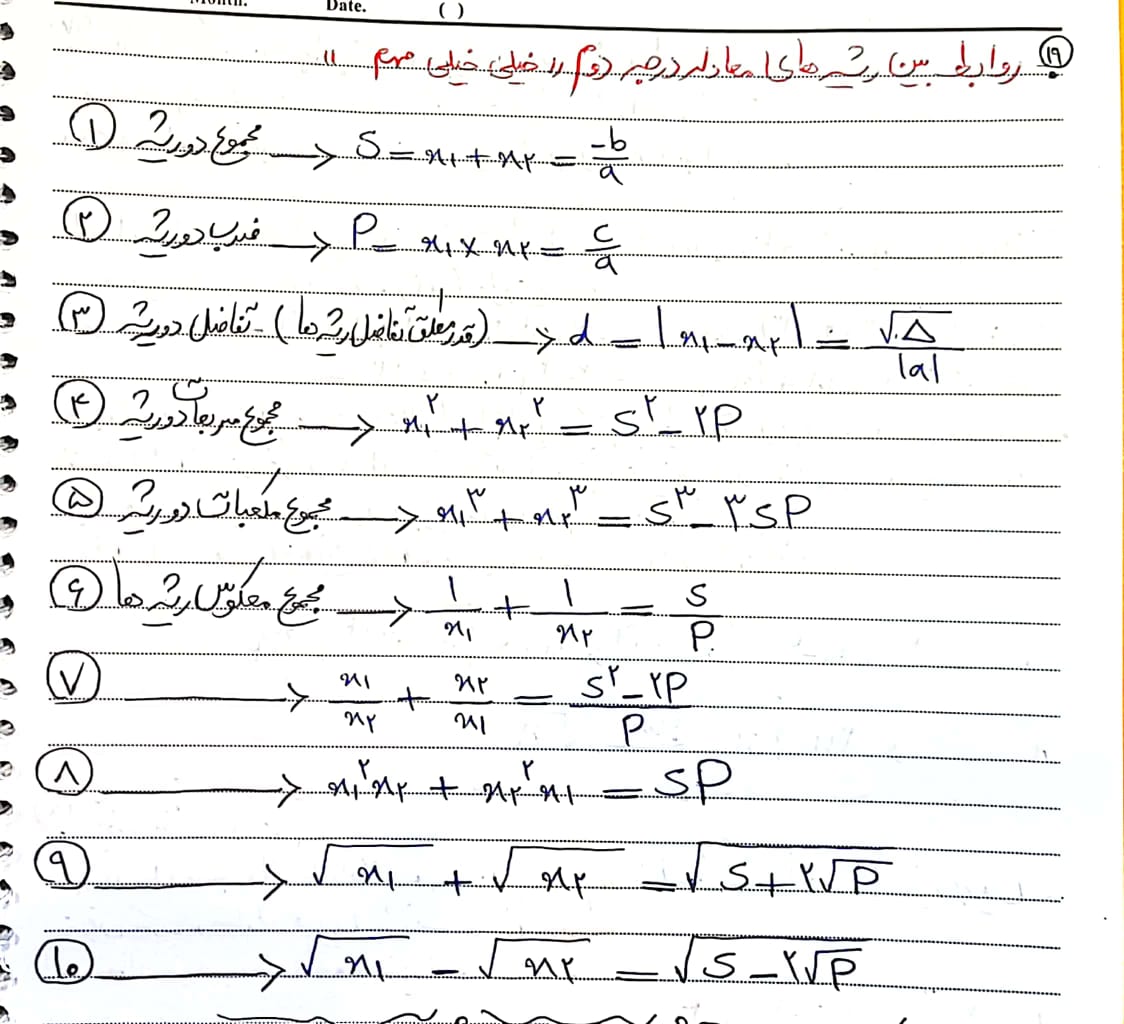 Date. ( )
۱۹) روابط بین ریشه های معادله درجه دوم " خیلی خیلی مهم "
۱ مجموع دو ریشه → S = x₁ + x₂ = -b/a
۲ ضرب دو ریشه → P = x₁ × x₂ = c/a
۳ تفاضل دو ریشه - (قدر مطلق تفاضل ریشه ها) → d = |x₁ - x₂| = √Δ/|a|
۴ مجموع مربعات دو ریشه → x₁² + x₂² = S² - ۲P
۵ مجموع مکعبات دو ریشه → x₁³ + x₂³ = S³ - ۳SP
۶ مجموع معکوس ریشه ها → 1/x₁ + 1/x₂ = S/P
۷ → x₁/x₂ + x₂/x₁ = (S² - ۲P)/P
۸ → x₁²x₂ + x₂²x₁ = SP
۹ → √x₁ + √x₂ = √(S + ۲√P)
۱۰ → √x₁ - √x₂ = √(S - ۲√P)